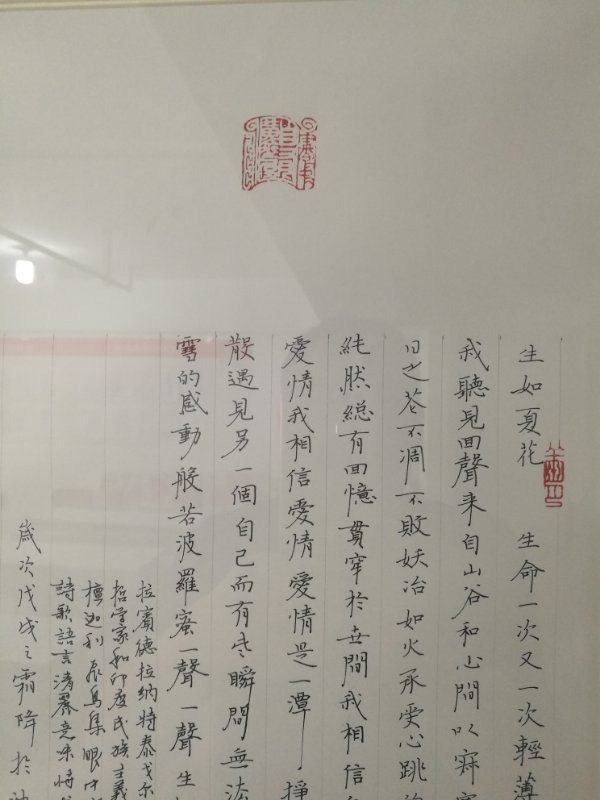 生如夏花 生命一次又一次輕薄
我聽見回聲来自山谷和心間以寂
日之花不凋不敗妖冶如火承受心跳的
純然總有回憶貫穿於世間我相信
愛情我相信愛情愛情是一潭掙
散遇見另一個自己而有些瞬間無法
雪的感動般若波羅蜜一聲一聲生
拉賓德拉納特泰戈尔
哲学家和印度民族主義
檀迦利飛鳥集眼中
詩歌語言清麗意味
歲次戊戌之霜降於